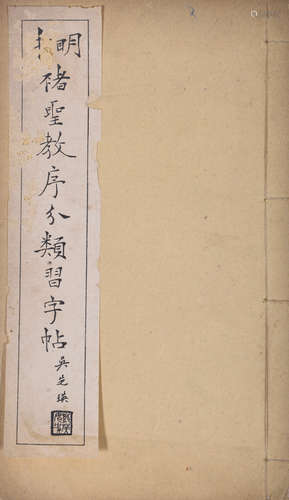 明拓
褚聖教序分類習字帖
吳芝瑛